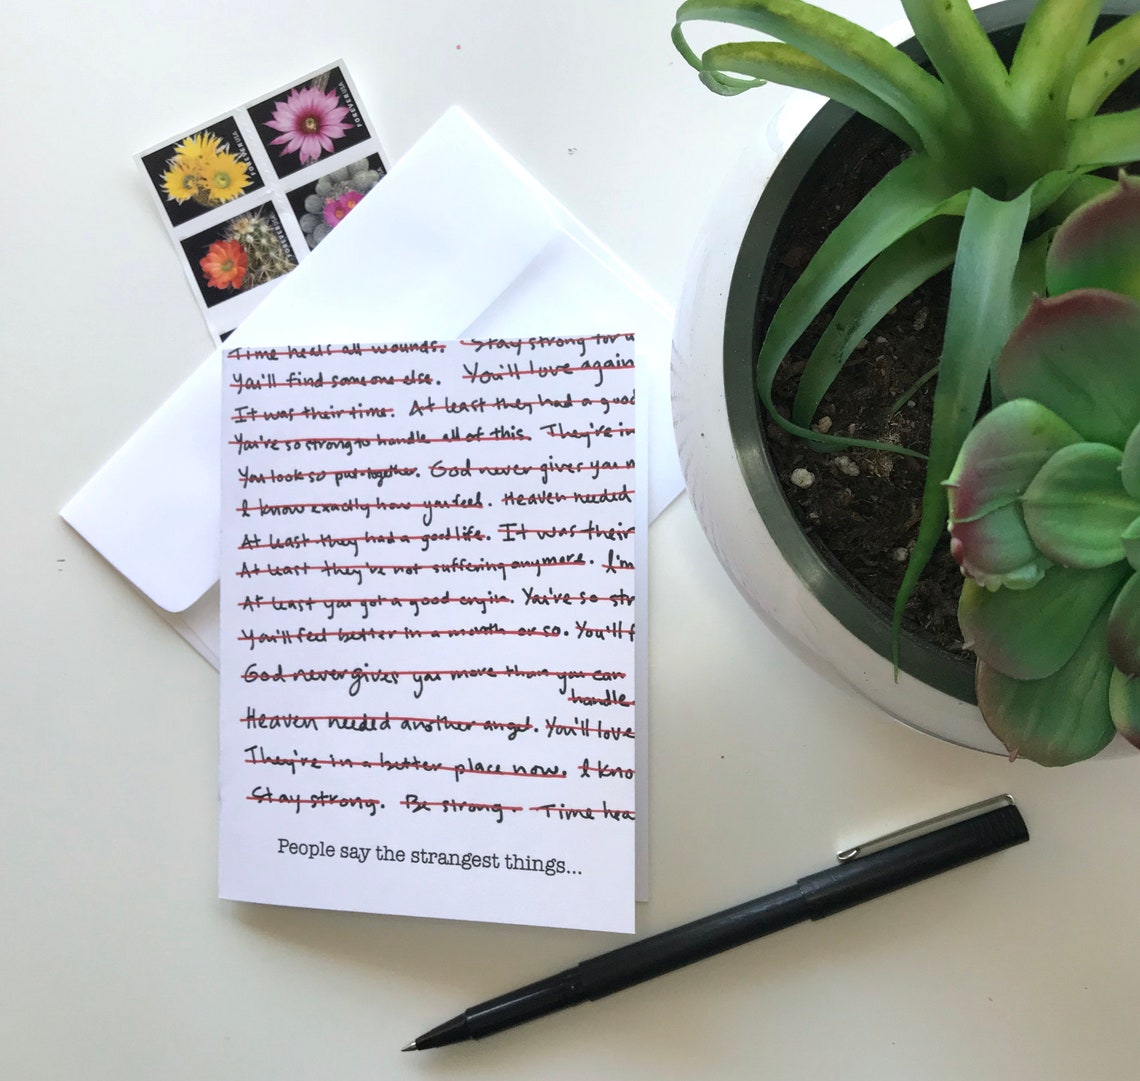 FOREVER USA
FOREVER USA
FOREVER USA
Time heals all wounds. Stay strong for
You'll find someone else. You'll love again
It was their time. At least they had a good
You're so strong to handle all of this. They're in
You look so put-together. God never gives you
I know exactly how you feel. Heaven needed
At least they had a good life. It was their
At least they're not suffering anymore. I'm
At least you got a good engin. You're so str
You'll feel better in a month or so. You'll f
God never gives you more than you can
handle.
Heaven needed another angel. You'll love
They're in a better place now. I kno
Stay strong. Be strong. Time hea
People say the strangest things...